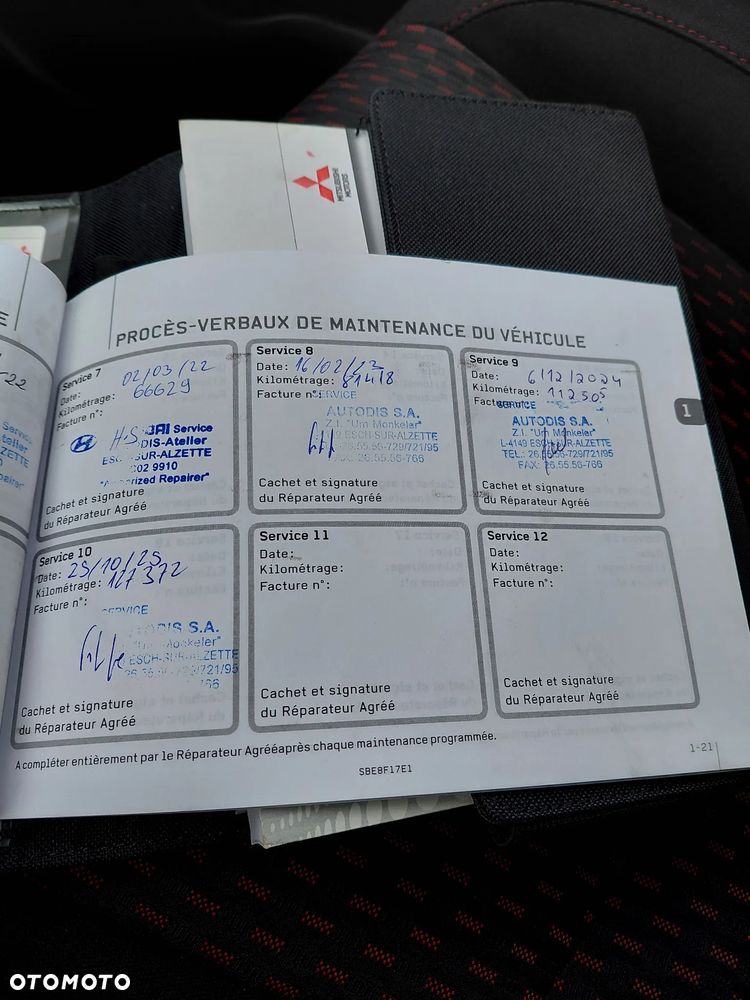 MITSUBISHI
MOTORS
E
22
PROCÈS-VERBAUX DE MAINTENANCE DU VÉHICULE
Service 7
Date: 02/03/22
Kilométrage: 66629
Facture n°:
Service
DIS-Atelier
ESCH-SUR-ALZETTE
002 9910
"Authorized Repairer"
Cachet et signature
du Réparateur Agréé
Service 8
Date: 16/02/23
Kilométrage: 81418
Facture n°:
SERVICE
AUTODIS S.A.
Z.I. "Um Monkeler"
ESCH-SUR-ALZETTE
26.55.56-729/721/95
FAX: 26.55.56-766
Cachet et signature
du Réparateur Agréé
Service 9
Date: 6/12/2024
Kilométrage: 112505
Facture n°:
SERVICE
AUTODIS S.A.
Z.I. "Um Monkeler"
L-4149 ESCH-SUR-ALZETTE
TEL.: 26.55.56-729/721/95
FAX: 26.55.56-766
Cachet et signature
du Réparateur Agréé
1
Service 10
Date: 23/10/25
Kilométrage: 127372
Facture n°:
SERVICE
AUTODIS S.A.
"Um Monkeler"
ESCH-SUR-ALZETTE
26.55.56-729/721/95
766
Cachet et signature
du Réparateur Agréé
Service 11
Date:
Kilométrage:
Facture n°:
Cachet et signature
du Réparateur Agréé
Service 12
Date:
Kilométrage:
Facture n°:
Cachet et signature
du Réparateur Agréé
A compléter entièrement par le Réparateur Agrééaprès chaque maintenance programmée.
SBE8F17E1
1-21
OTOMOTO